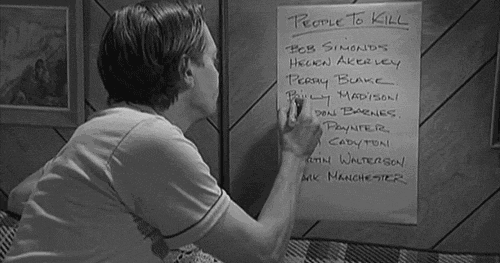 PEOPLE TO KILL
BOB SIMONDS
HELEN AKERLEY
PERRY BLAKE
BILLY MADISON
BARNES
PAYNTER
CADYTON
WALTERSON
MANCHESTER